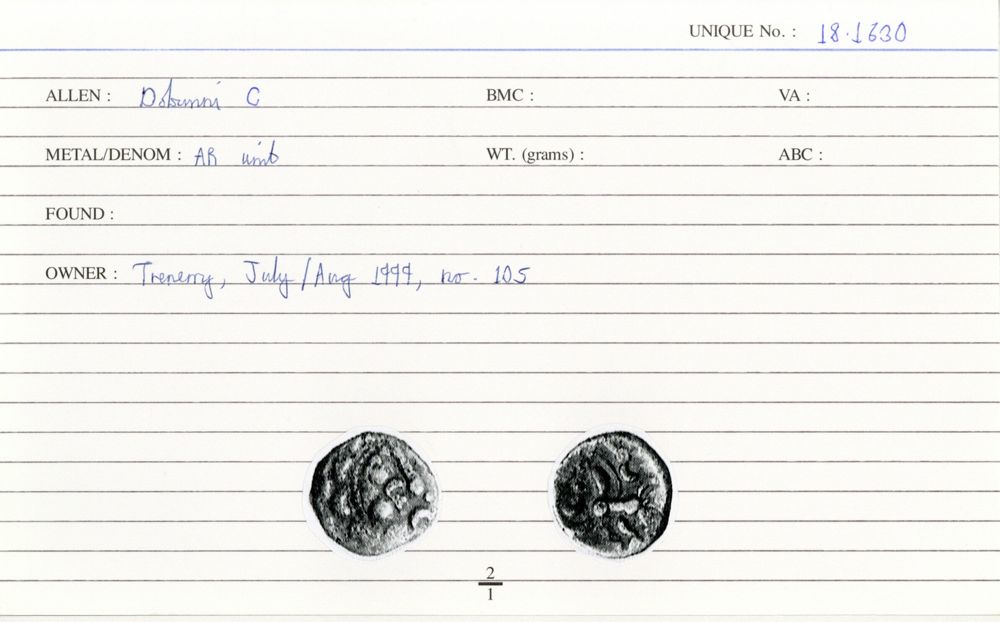 UNIQUE No. : 18.1630
ALLEN : Dobunni C BMC : VA :
METAL/DENOM : AR unit WT. (grams) : ABC :
FOUND :
OWNER : Trenerry, July/Aug 1999, no. 105
2
1